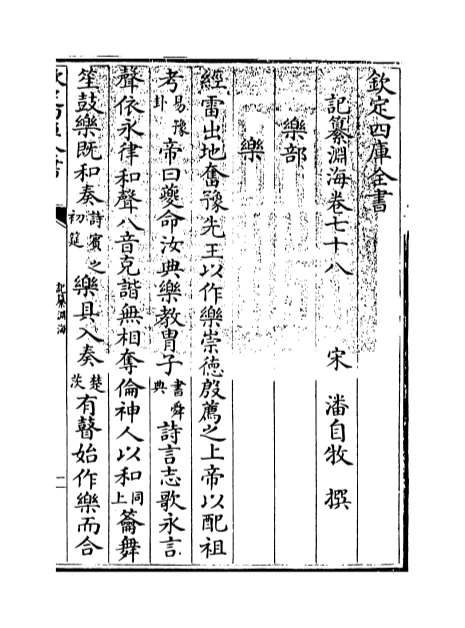 欽定四庫全書
記纂淵海卷七十八
宋 潘自牧 撰
樂部
樂
經雷出地奮豫先王以作樂崇德殷薦之上帝以配祖
考易豫卦帝曰夔命汝典樂教胄子書舜典詩言志歌永言
聲依永律和聲八音克諧無相奪倫神人以和同上籥舞
笙鼓樂既和奏詩賓之初筵樂具入奏楚茨有瞽始作樂而合
記纂淵海